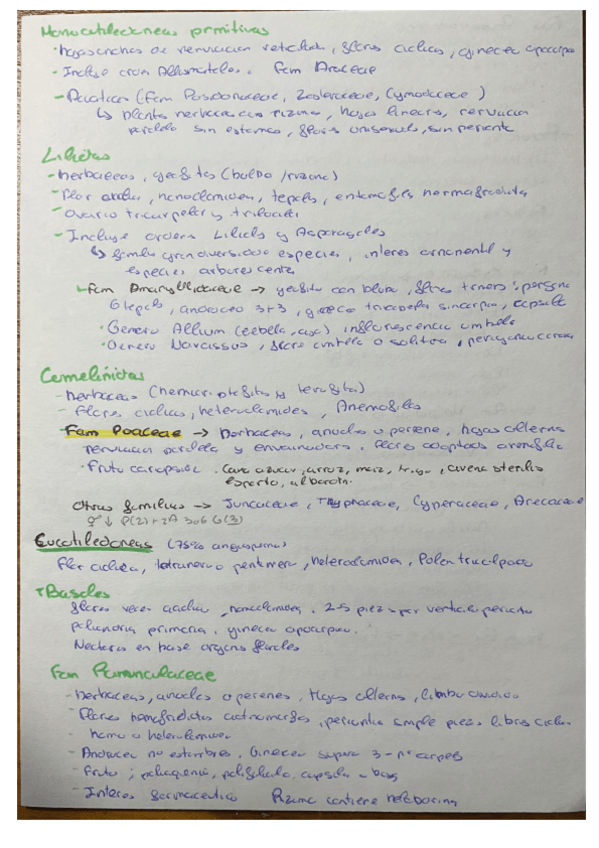 Monocotiledoneas primitivas
· hojas anchas de nerviacion reticulada, flores ciclicas, gineceo apocarpo
- Incluye orden Alismatales. Fam Araceae
- Acuaticas (Fam Posidonaceae, Zosteraceae, Cymodoceae)
↳ plantas herbaceas con rizoma, hojas lineares, nervacion
paralela sin estomas, flores unisexuals, sin periante
Liliidas
- herbaceas, geofitas (bulbo /rizoma)
- Flor , homoclamidea, tepalos, entomofila hermafrodita
- Ovario tricarpelar y trilocular
- Incluye ordens Liliales y Asparagales
↳ familia gran diversidad especies, interes ornamental y
especies arborescentes
- Fam Amaryllidaceae → geofitas con bulbo, flores trimeras: perigonio
6 tepalos, androceo 3+3, gineceo tricarpelar sincarpico, capsula
· Genero Allium (cebolla, ajo) inflorescencia umbela
· Genero Narcissus, flores umbela o solitaria, perigonio corona
Comelinidas
- herbaceas (hemicriptofitas y terofitas)
- Flores ciclicas, heteroclamideas, Anemofilas
- Fam Poaceae → Herbaceas, anuales o perenne, hojas alternas
nervacion paralela y envainadora, flores adaptadas anemofilia
· Fruto cariopside. Caña azucar, arroz, maiz, trigo, avena sterilis
esparto, albardin.
Otras familias → Juncaceae, Thyphaceae, Cyperaceae, Arecaceae
P(2)+2A 3o6 G(3)
Eucotiledoneas (75% angiosperma)
Flor ciclica, tetramera o pentamera, heteroclamidea, Polen tricolpado
Basales
flores veces aciclica, homoclamidea, 2-5 piezas por verticilo periantio
poliandria primaria, gineceo apocarpico.
Nectarios en base organos florales
Fam Ranunculaceae
- herbaceas, anuales o perenes, Hojas alternas, limbo dividido
- Flores hemafroditas actinomorfas, periantio simple piezas libres ciclic.
- homo o heteroclamidea
- Androceo nº estambres, Gineceo supero 3-nº carpelos
- Fruto; poliaquenio, polifoliculo, capsula o baya
- Interes farmaceutico Rizoma contiene heleborina